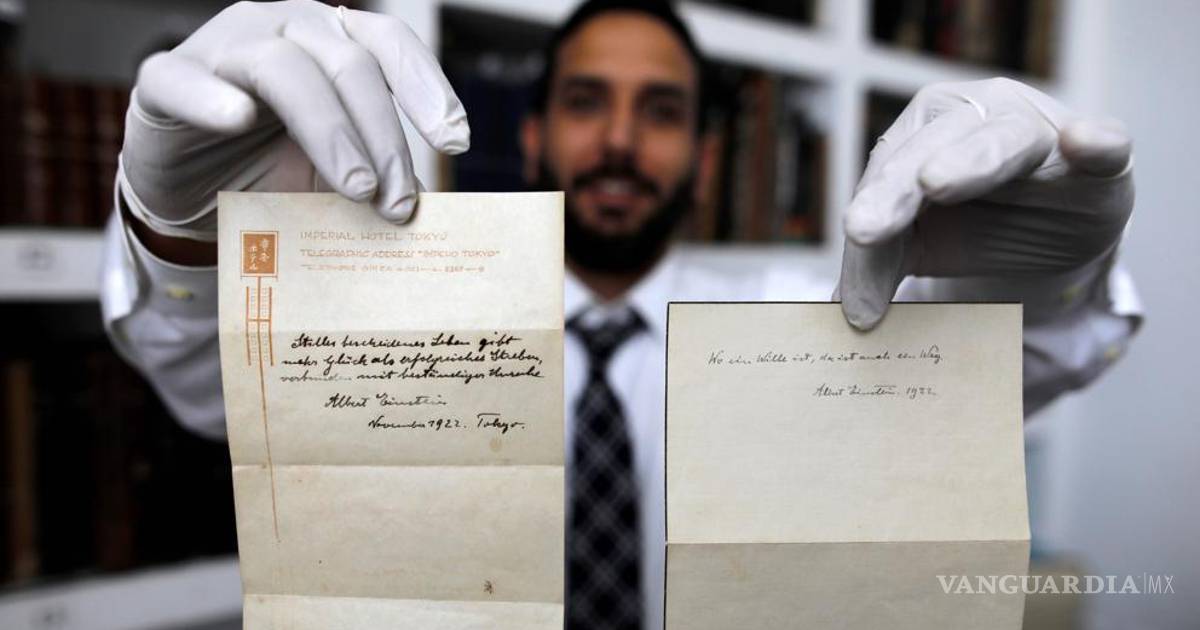 帝国
ホテル
IMPERIAL HOTEL TOKYO
TELEGRAPHIC ADDRESS "IMPEHO TOKYO"
Stilles bescheidenes Leben gibt
mehr Glück als erfolgreiches Streben,
verbunden mit beständiger Unruhe
Albert Einstein
November 1922. Tokyo.
Wo ein Wille ist, da ist auch ein Weg
Albert Einstein. 1922.
VANGUARDIA|MX